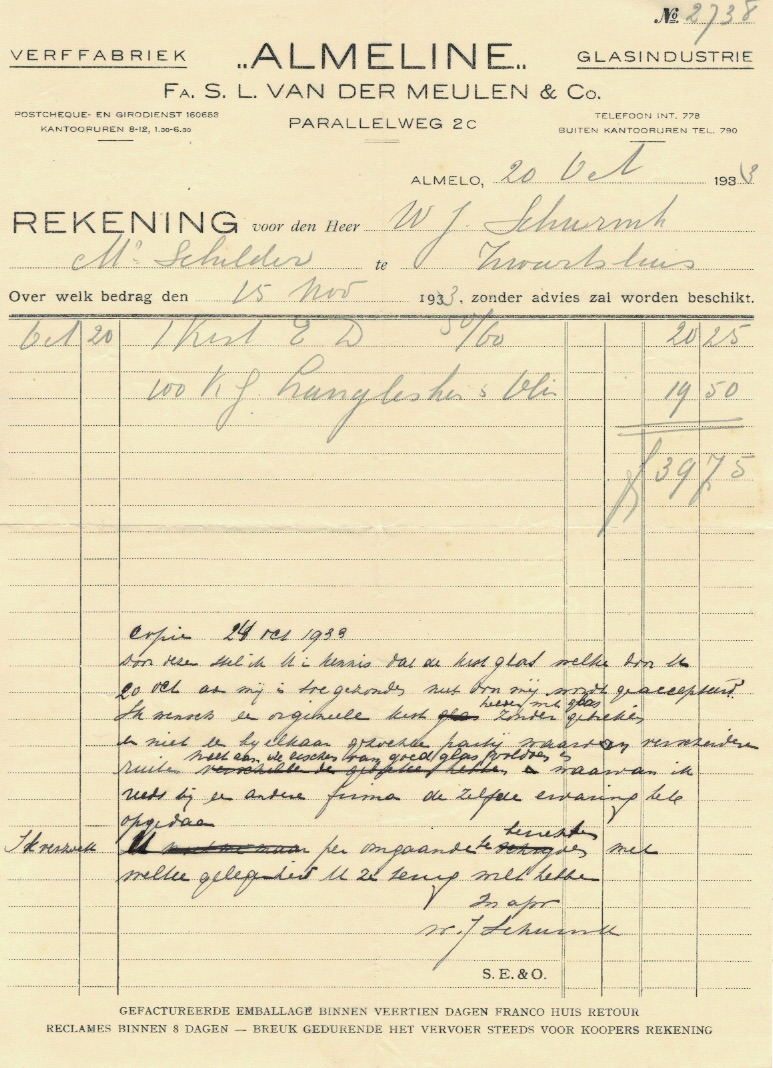 No 2738
VERFFABRIEK „ALMELINE„ GLASINDUSTRIE
FA. S. L. VAN DER MEULEN & Co.
POSTCHEQUE- EN GIRODIENST 160653
KANTOORUREN 8-12, 1.30-6.30
PARALLELWEG 2C
TELEFOON INT. 778
BUITEN KANTOORUREN TEL. 790
ALMELO, 20 Oct 1933
REKENING voor den Heer W J. Schurink
Mr Schilder te Zwartsluis
Over welk bedrag den 15 Nov 1933, zonder advies zal worden beschikt.
Oct 20 1 Kist E D 50/60 20 25
100 KG 19 50
f 39 75
Copie 24 oct 1933
Door dezen stel ik U in kennis dat de kist glas welke door U
20 oct aan mij is toegezonden niet door mij wordt geaccepteerd.
Ik wensch een orgineele kist glas zonder gebreken
en niet een bij elkaar gezochte partij waarvan verscheidene
ruiten niet aan de eischen van goed glas voldoen waarvan ik
reeds bij een andere firma de zelfde ervaring heb
opgedaan
Ik verzoek U per omgaande te berichten met
welke gelegenheid U ze terug wilt hebben
W. J Schurink
S. E. & O.
GEFACTUREERDE EMBALLAGE BINNEN VEERTIEN DAGEN FRANCO HUIS RETOUR
RECLAMES BINNEN 8 DAGEN — BREUK GEDURENDE HET VERVOER STEEDS VOOR KOOPERS REKENING